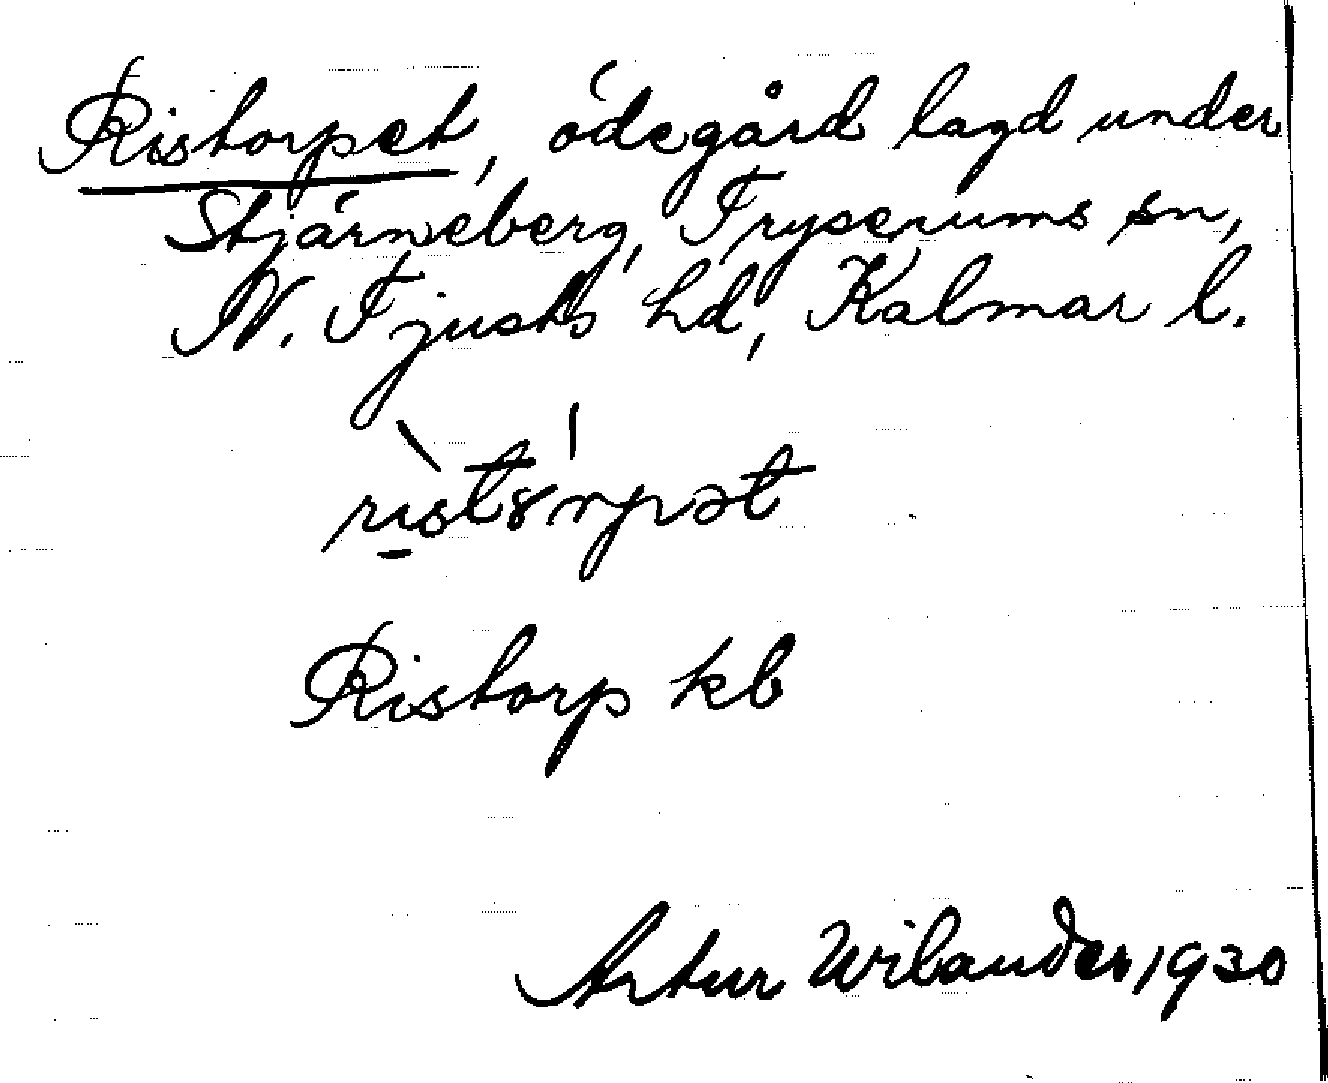 Ristorpet, ödegård lagd under
Stjärneberg, Tryserums sn,
N. Tjusts hd, Kalmar l.
Ristorp kb
Artur Wilander, 1930